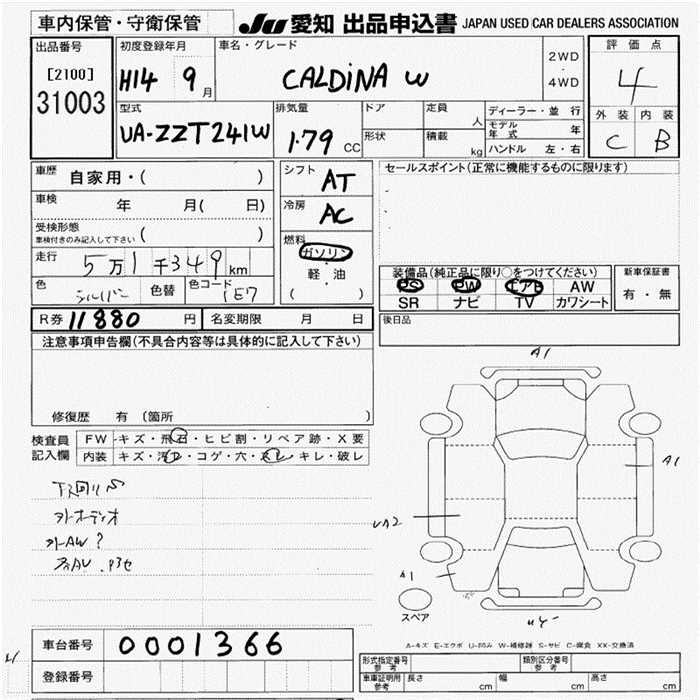 車内保管・守衛保管
JU 愛知 出品申込書 JAPAN USED CAR DEALERS ASSOCIATION
出品番号
[2100]
31003
初度登録年月
H14 9月
車名・グレード
CALDINA W
2WD
・
4WD
評価点
4
外装 内装
C B
型式
UA-ZZT241W
排気量
1.79 CC
ドア
定員
人
形状
積載
kg
ディーラー・並行
モデル年式 年
ハンドル 左・右
車歴 自家用・( )
車検 年 月( 日)
受検形態
車検付きのみ記入して下さい ( )
走行 5万1千349km
色 シルバー 色替 色コード 1E7
シフト AT
冷房 AC
燃料
ガソリン
・
軽・油
( )
セールスポイント(正常に機能するものに限ります)
装備品(純正品に限り○をつけてください)
PS PW エアB AW
SR ナビ TV カワシート
新車保証書
有・無
R券 11880 円 名変期限 月 日
後日品
注意事項申告欄(不具合内容等は具体的に記入して下さい)
修復歴 有 (箇所 )
検査員記入欄
FW キズ・飛石・ヒビ割・リペア跡・X要
内装 キズ・汚れ・コゲ・穴・スレ・キレ・破レ
下回りS
外オーディオ
外AW?
A1
A1
A1
スペア
A-キズ E-エクボ U-凹み W-補修跡 S-サビ C-腐食 XX-交換済
車台番号 0001366
登録番号
形式指定番号
参考
類別区分番号
参考
車庫証明用
参考
長さ cm 幅 cm 高さ cm